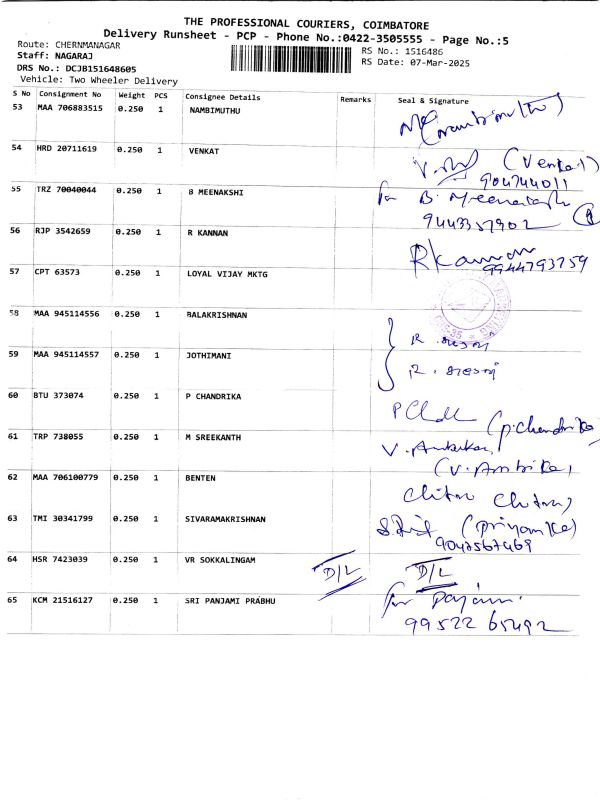 THE PROFESSIONAL COURIERS, COIMBATORE
Delivery Runsheet - PCP - Phone No.:0422-3505555 - Page No.:5
Route: CHERNMANAGAR
RS No.: 1516486
Staff: NAGARAJ
RS Date: 07-Mar-2025
DRS No.: DCJB151648605
Vehicle: Two Wheeler Delivery
S No Consignment No Weight PCS Consignee Details Remarks Seal & Signature
53 MAA 706883515 0.250 1 NAMBIMUTHU
(nambimuthu)
54 HRD 20711619 0.250 1 VENKAT
(Venkat)
904744011
55 TRZ 70040044 0.250 1 B MEENAKSHI
for B. Meenakshi
9443357902
56 RJP 3542659 0.250 1 R KANNAN
R Kannan
9944793759
57 CPT 63573 0.250 1 LOYAL VIJAY MKTG
58 MAA 945114556 0.250 1 BALAKRISHNAN
59 MAA 945114557 0.250 1 JOTHIMANI
60 BTU 373074 0.250 1 P CHANDRIKA
(P.Chandrika)
61 TRP 738055 0.250 1 M SREEKANTH
V. Ambika,
(V. Ambika)
62 MAA 706100779 0.250 1 BENTEN
Chitra Chitra)
63 TMI 30341799 0.250 1 SIVARAMAKRISHNAN
(Priyanka)
9042567469
64 HSR 7423039 0.250 1 VR SOKKALINGAM
D/L D/L
65 KCM 21516127 0.250 1 SRI PANJAMI PRABHU
for Panjami
99522 65492